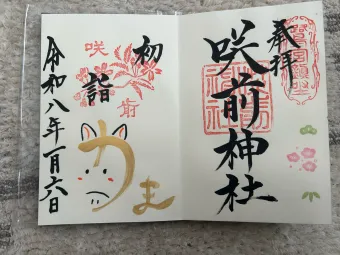 奉拝
咲前神社
初詣
うま
令和八年一月六日
咲
前